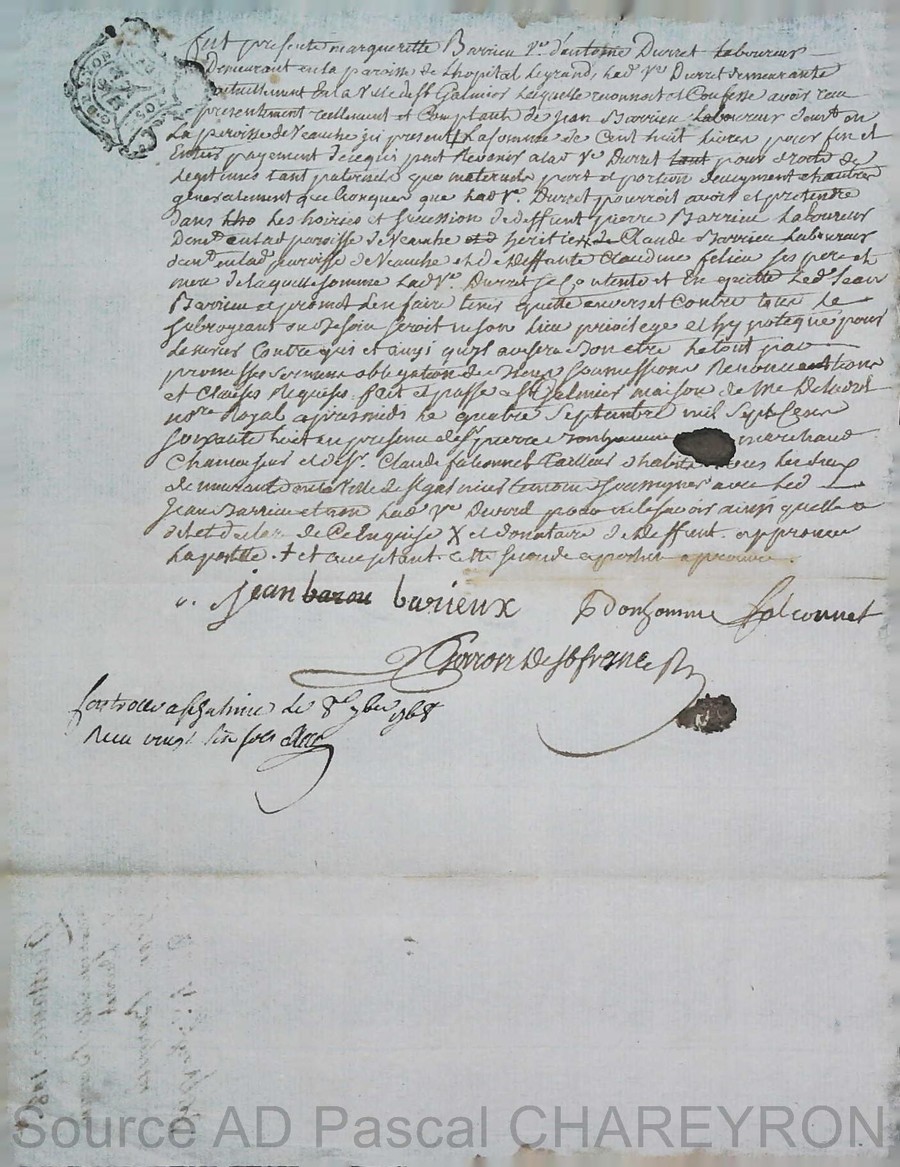 fut presente margueritte Barrieu Ve d'antoine Durret Laboureur
Demeurant en la paroisse de Lhopital Legrand, Lad. Ve Durret demeurante
actuellement en la Ville de St Galmier Laquelle reconnoit et Confesse avoir reçu
presentement reellement et Comptant de jean Barrieu Laboureur demt en
La paroisse de Veauche icy present La somme de Cent huit Livres pour fin et
Entier payement de ce qui peut Revenir a lad. Ve Durret tant pour droits de
Legitimes tant paternels que maternels part et portion d'augment et hautres
generalement quelconques que lad. Ve. Durret pourroit avoir et pretendre
dans Les hoiries et succession de deffunt pierre Barrieu Laboureur
Demt en lad paroisse de Veauche heritier de Claude Barrieu Laboureur
demt en lad. paroisse de Veauche et de deffunte Claudine felieu ses pere et
mere de laquelle somme Lad. Ve. Durret se Contente et En quitte Led. Jean
Barrieu et promet L'en faire tenir quitte envers et Contre tous Le
subrogeant au Besoin seroit en son Lieu privilege et hypoteque pour
Contre qui et ainsi qu'il avisera Bon etre Le tout par
promesses serment obligation de Biens soumissions Renonciations
et Clauses Requises. fait et passé a St Galmier maison de Me
nore Royal apres midi Le quatre Septembre mil Sept Cent
soixante huit en presence de sr. pierre Bonhomme marchand
et de sr. Claude falconnet tailleur d'habits tous Les deux
demeurant en la Ville de St galmier temoins soussignés avec Led.
Jean Barrieu et non Lad. Ve Durret pour ne le savoir ainsi quelle a
dit et declaré de Ce Enquise X et donataire de deffunt approuvé
La postille. + et acceptant cette seconde apostille approuvée.
jean barou barieux P Bonhomme falconnet
Controllé a St Galmier le 8e 7bre 1768
Reçu vingt six sols
Source AD Pascal CHAREYRON